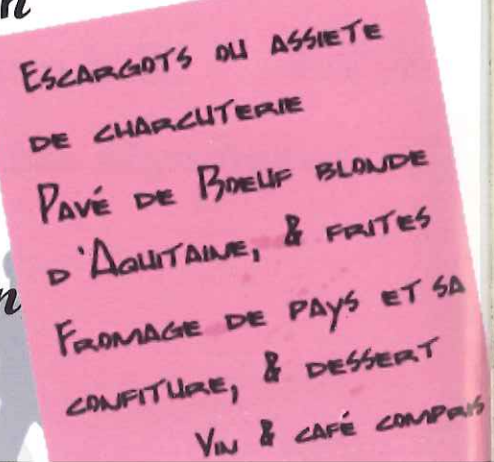 n
ESCARGOTS OU ASSIETE
DE CHARCUTERIE
PAVÉ DE BOEUF BLONDE
D'AQUITAINE, & FRITES
n
FROMAGE DE PAYS ET SA
CONFITURE, & DESSERT
VIN & CAFÉ COMPRIS